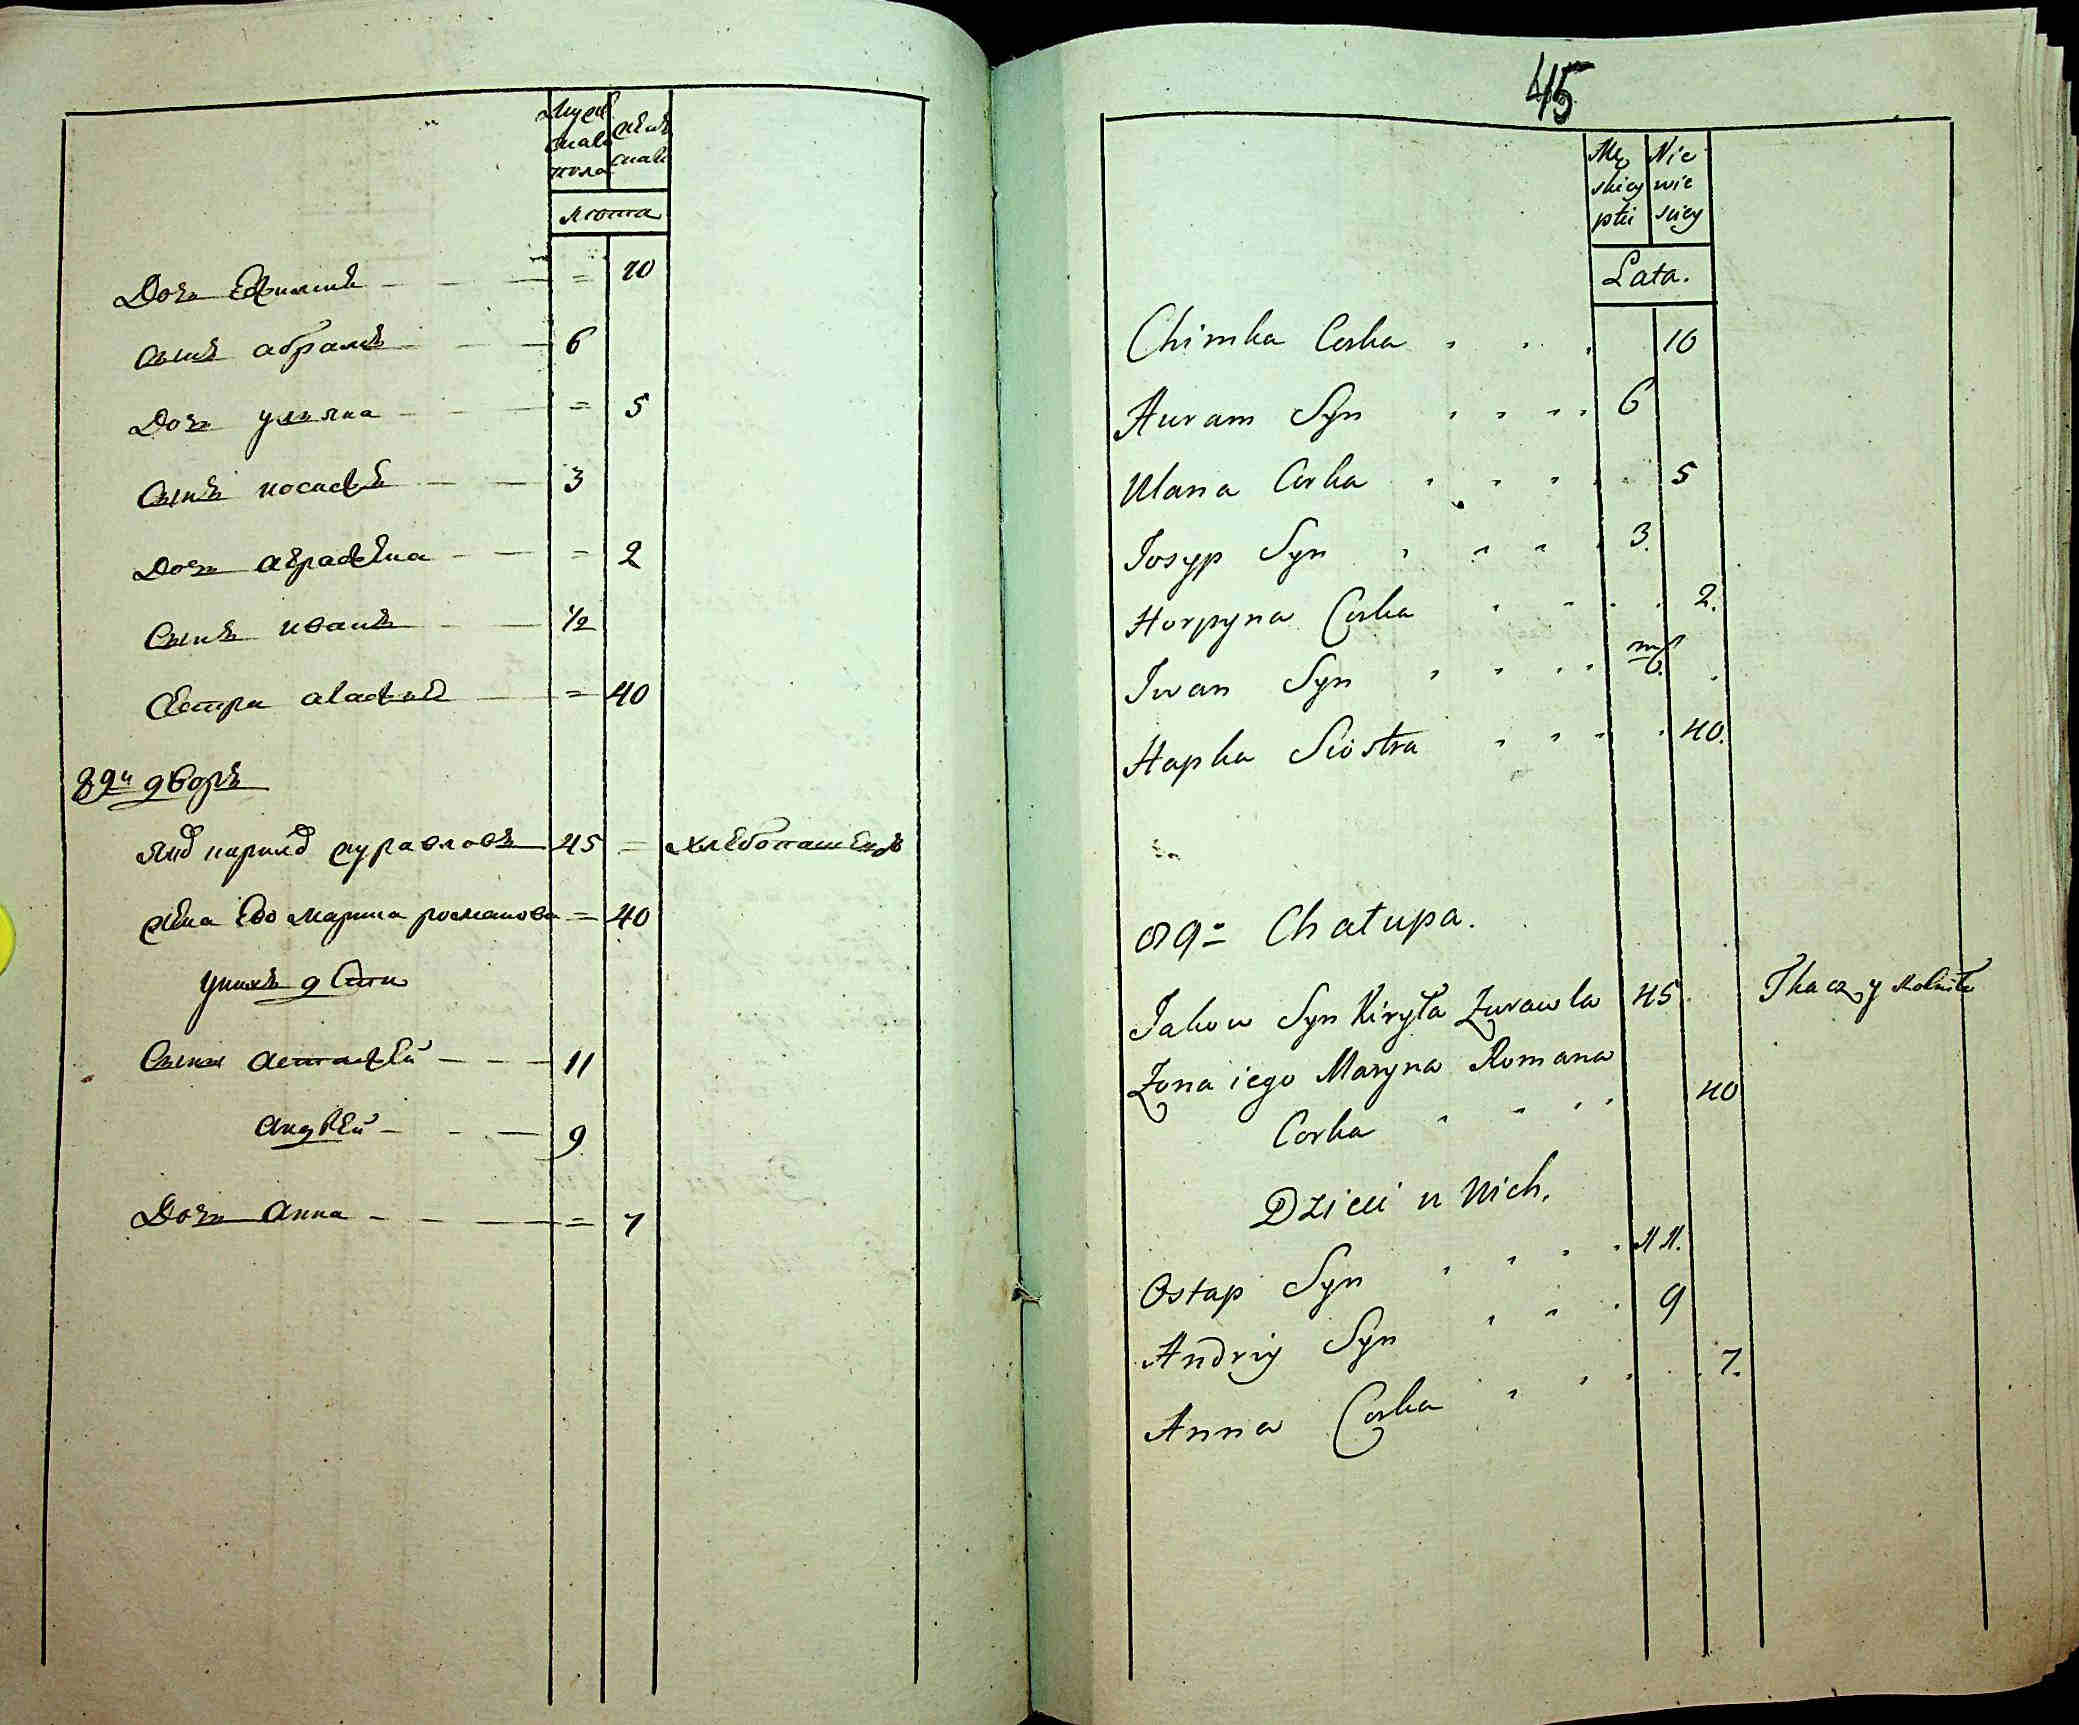 Мужеска пола
женска
лѣта
Дочь Евфимия = 10
Сынъ абрамъ 6
Дочь ульяна = 5
Сынъ иосифъ 3
Дочь аграфена = 2
Сынъ иванъ 1/2
Сестра агафья = 40
89й дворъ
Яковъ кириловъ журавловъ 45 = хлебопашецъ
жена Его марина романова = 40
у них дети
Сыны астафей 11
андрей 9
Дочь анна = 7
45
Męskiey płci
Niewieściey
Lata.
Chimka Corka 10
Auram Syn 6
Ulana Corka 5
Josyp Syn 3.
Horpyna Corka 2.
Jwan Syn m/6.
Hapka Siostra 40.
89= Chałupa.
Jakow Syn Kiryła Zurawla 45 Tkacz y rolnik
Zona iego Maryna Romana
Corka 40
Dzieci u Nich.
Ostap Syn 11.
Andriy Syn 9
Anna Corka 7.